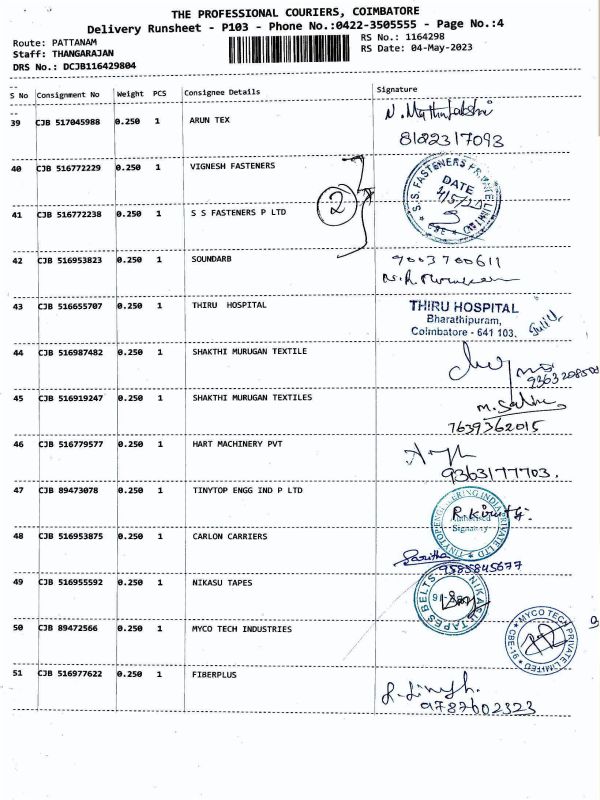 THE PROFESSIONAL COURIERS, COIMBATORE
Delivery Runsheet - P103 - Phone No.:0422-3505555 - Page No.:4
Route: PATTANAM
RS No.: 1164298
Staff: THANGARAJAN
RS Date: 04-May-2023
DRS No.: DCJB116429804
S No Consignment No Weight PCS Consignee Details Signature
39 CJB 517045988 0.250 1 ARUN TEX
8122317093
40 CJB 516772229 0.250 1 VIGNESH FASTENERS
S.S. FASTENERS PRIVATE LIMITED
DATE
CBE
2
41 CJB 516772238 0.250 1 S S FASTENERS P LTD
42 CJB 516953823 0.250 1 SOUNDARB 9003700611
43 CJB 516655707 0.250 1 THIRU HOSPITAL
THIRU HOSPITAL
Bharathipuram,
Coimbatore - 641 103.
44 CJB 516987482 0.250 1 SHAKTHI MURUGAN TEXTILE
45 CJB 516919247 0.250 1 SHAKTHI MURUGAN TEXTILES
7639362015
46 CJB 516779577 0.250 1 HART MACHINERY PVT
9363177703.
47 CJB 89473078 0.250 1 TINYTOP ENGG IND P LTD
TINYTOP ENGINEERING INDIA PRIVATE LTD
Authorised
Signatory
48 CJB 516953875 0.250 1 CARLON CARRIERS
Saritha
9585845677
49 CJB 516955592 0.250 1 NIKASU TAPES
NIKASU TAPES BELTS
50 CJB 89472566 0.250 1 MYCO TECH INDUSTRIES
MYCO TECH PRIVATE LIMITED
CBE-16
51 CJB 516977622 0.250 1 FIBERPLUS
9787602323